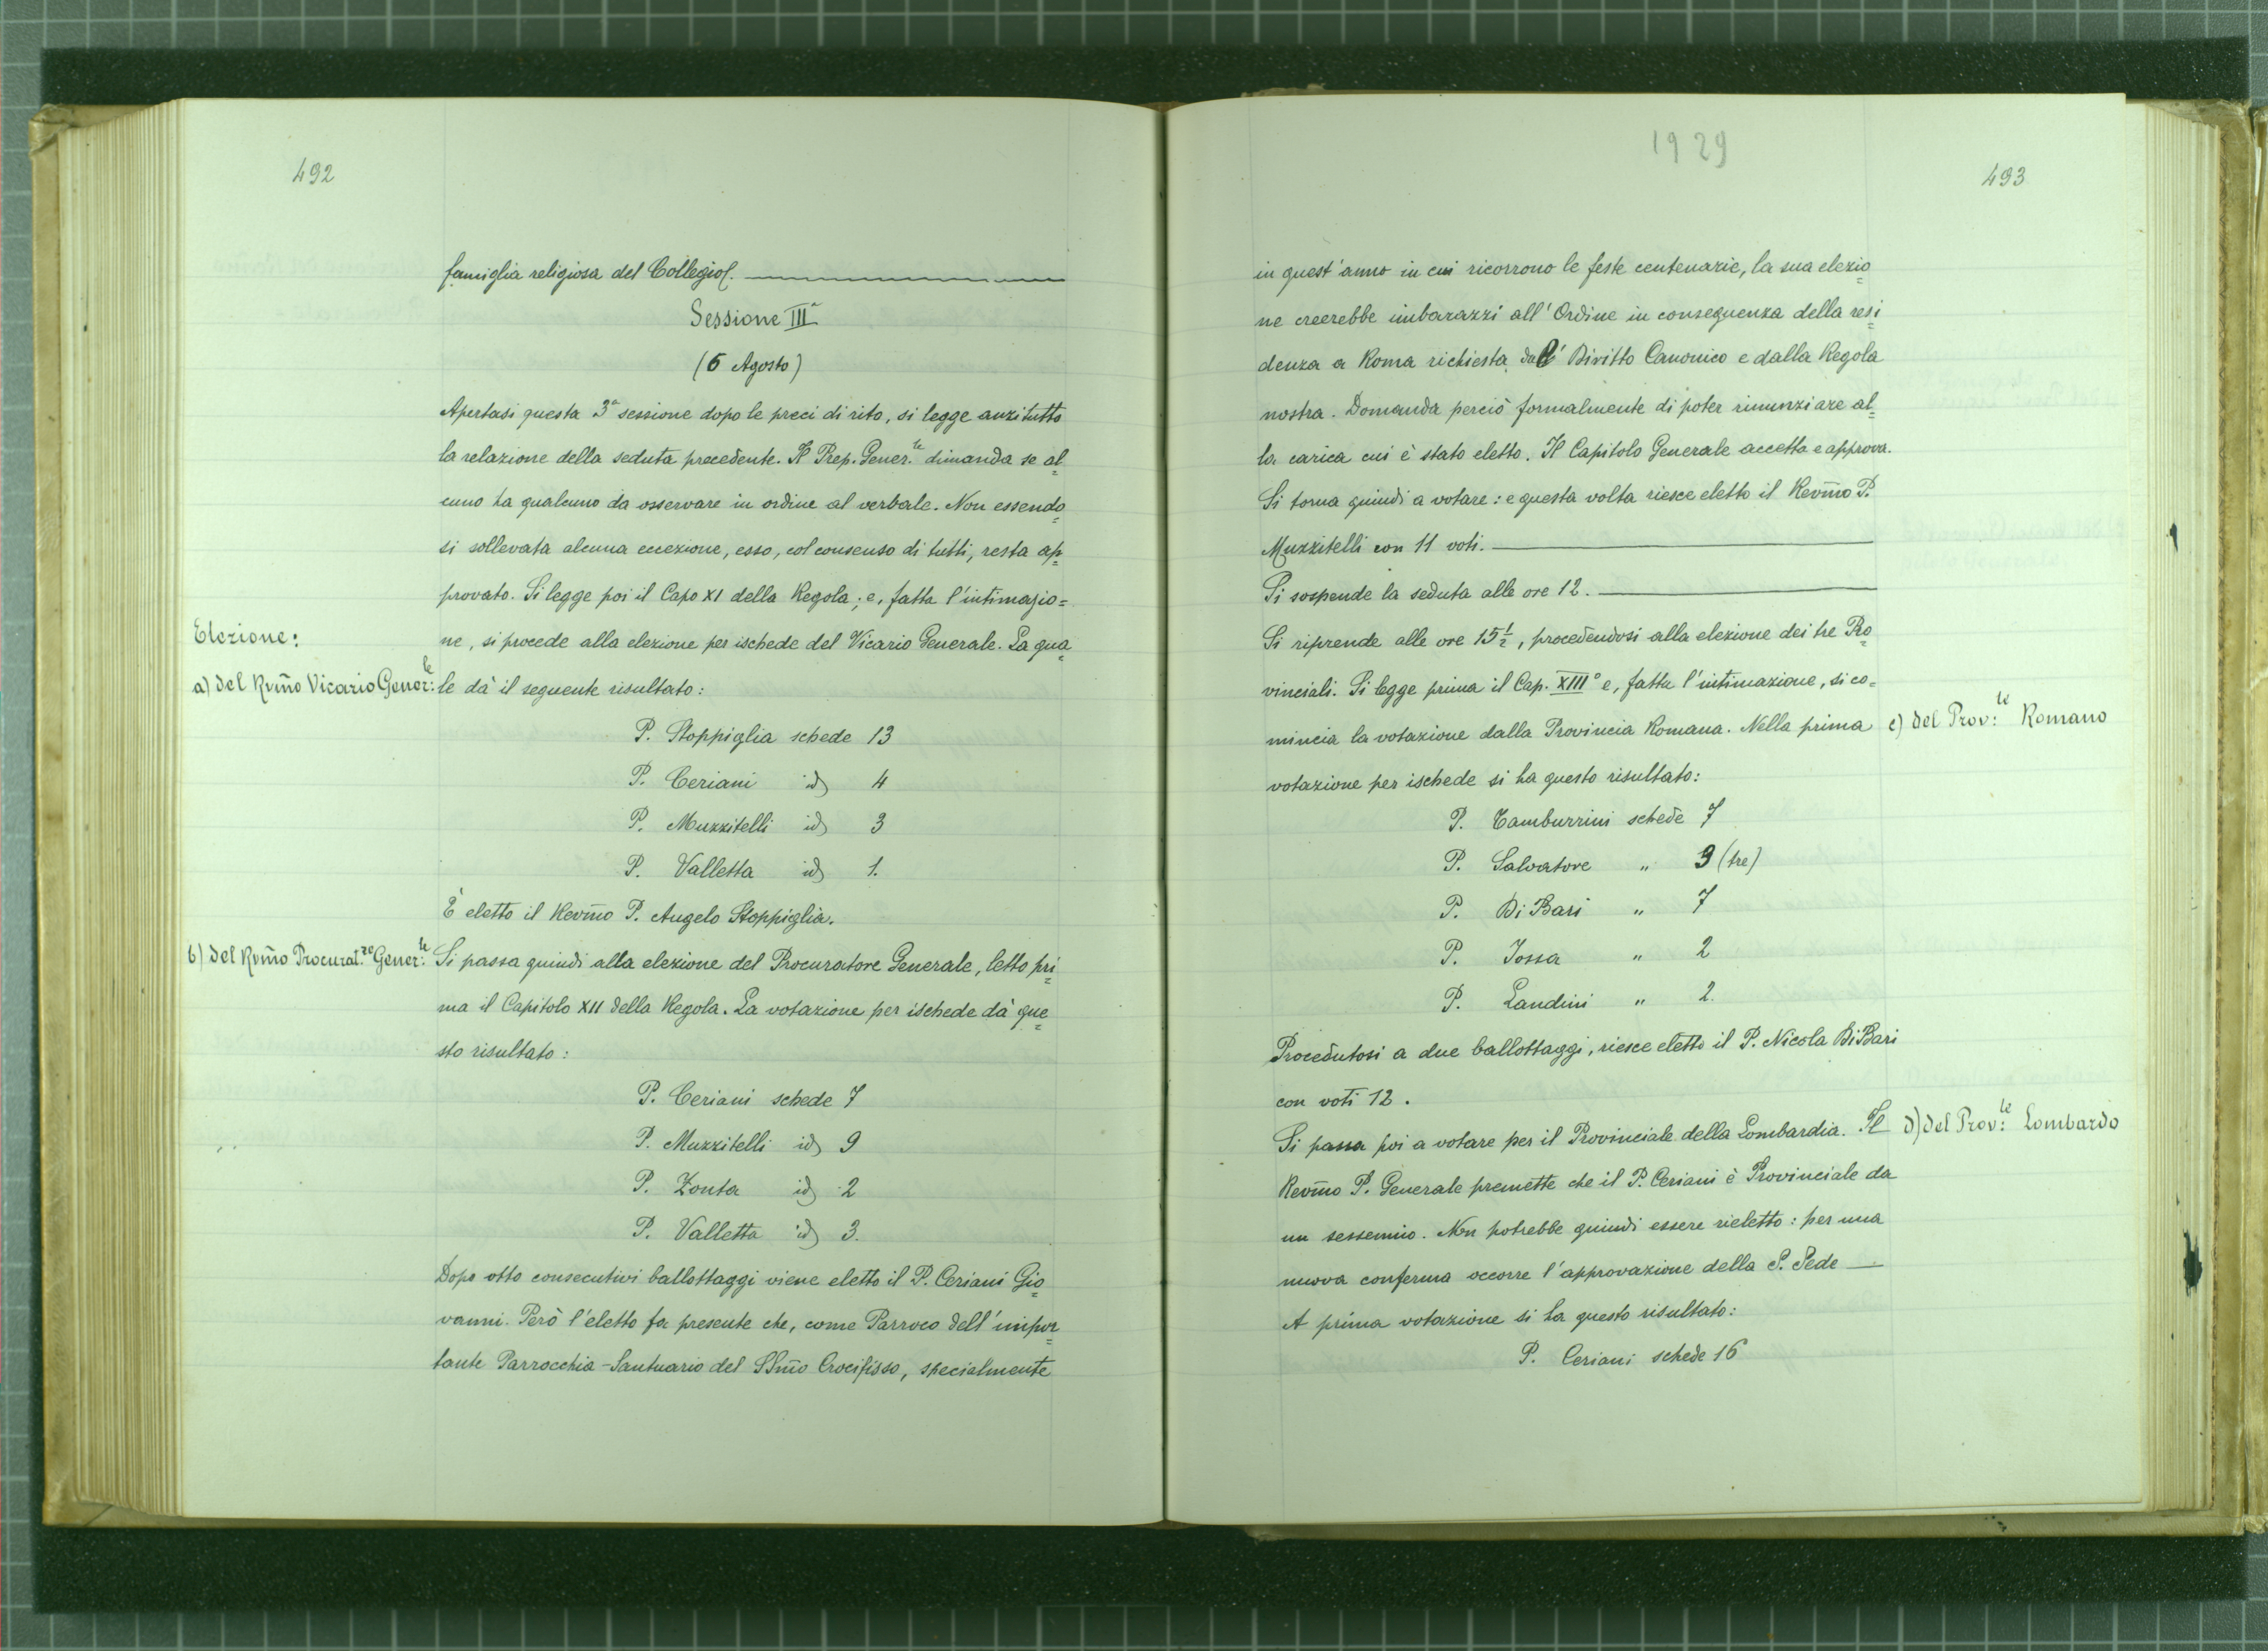 492
famiglia religiosa del Collegio.
Sessione IIIª
(6 Agosto)
Apertasi questa 3ª sessione dopo le preci di rito, si legge anzitutto
la relazione della seduta precedente. Il Prep. Gener.le dimanda se al=
cuno ha qualcuno da osservare in ordine al verbale. Non essendo=
si sollevata alcuna eccezione, esso, col consenso di tutti, resta ap=
provato. Si legge poi il Capo XI della Regola; e, fatta l'intimazio=
Elezione:
ne, si procede alla elezione per ischede del Vicario Generale. La qua=
a) del Rvm̃o Vicario Gener:le
le dà il seguente risultato:
P. Stoppiglia schede 13
P. Ceriani id 4
P. Muzzitelli id 3
P. Valletta id 1.
È eletto il Revm̃o P. Angelo Stoppiglia.
b) del Rvm̃o Procurat.re Gener:le
Si passa quindi alla elezione del Procuratore Generale, letto pri=
ma il Capitolo XII della Regola. La votazione per ischede dà que=
sto risultato:
P. Ceriani schede 7
P. Muzzitelli id 9
P. Zonta id 2
P. Valletta id 3.
Dopo otto consecutivi ballottaggi viene eletto il P. Ceriani Gio=
vanni. Però l'eletto fa presente che, come Parroco dell'impor=
tante Parrocchia-Santuario del SSm̃o Crocifisso, specialmente
1929
493
in quest'anno in cui ricorrono le feste centenarie, la sua elezio=
ne creerebbe imbarazzi all'Ordine in conseguenza della resi=
denza a Roma richiesta dal Diritto Canonico e dalla Regola
nostra. Domanda perciò formalmente di poter rinunziare al=
la carica cui è stato eletto. Il Capitolo Generale accetta e approva.
Si torna quindi a votare: e questa volta riesce eletto il Revm̃o P.
Muzzitelli con 11 voti.
Si sospende la seduta alle ore 12.
Si riprende alle ore 15½, procedendosi alla elezione dei tre Pro=
vinciali. Si legge prima il Cap. XIII° e, fatta l'intimazione, si co=
mincia la votazione dalla Provincia Romana. Nella prima
c) del Prov:le Romano
votazione per ischede si ha questo risultato:
P. Tamburrini schede 7
P. Salvatore " 3 (tre)
P. Di Bari " 7
P. Iossa " 2
P. Landini " 2.
Procedutosi a due ballottaggi, riesce eletto il P. Nicola Di Bari
con voti 12.
Si passa poi a votare per il Provinciale della Lombardia. Il
d) del Prov:le Lombardo
Revm̃o P. Generale premette che il P. Ceriani è Provinciale da
un sessennio. Non potrebbe quindi essere rieletto: per una
nuova conferma occorre l'approvazione della S. Sede
A prima votazione si ha questo risultato:
P. Ceriani schede 16